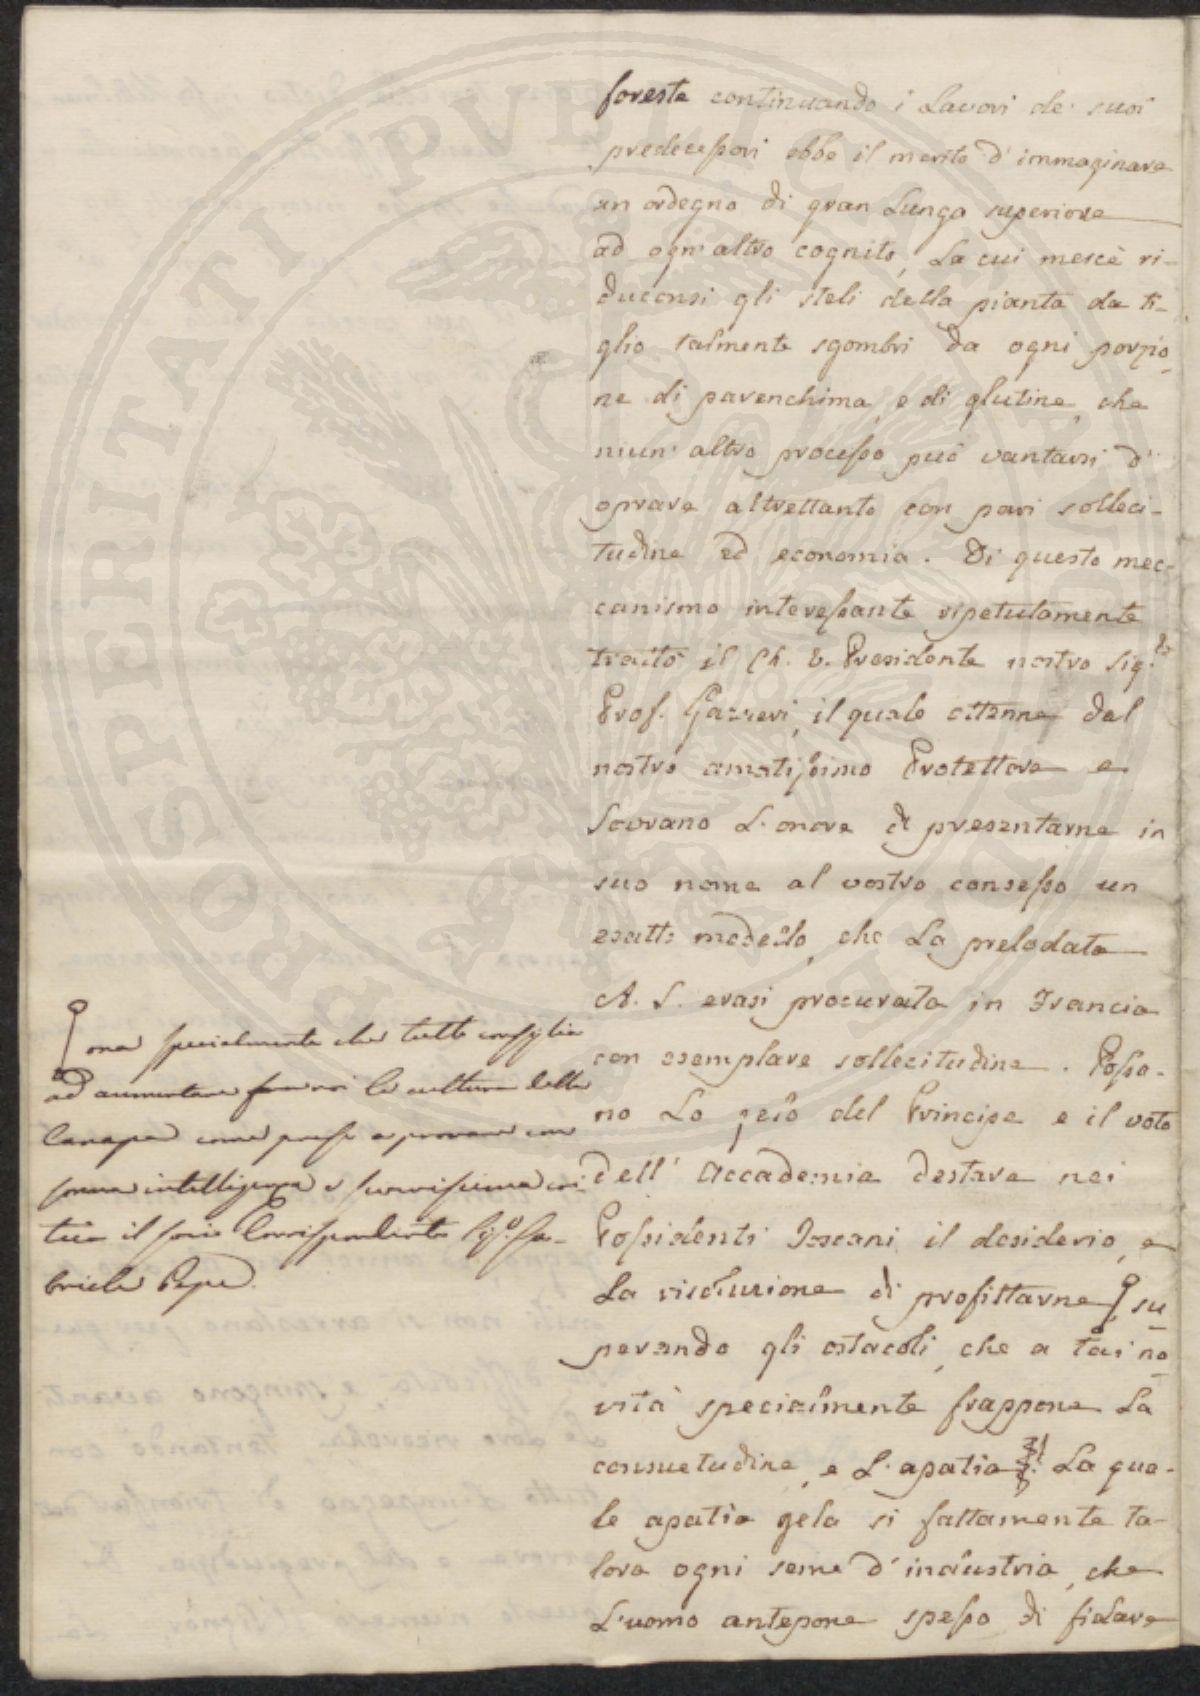 foreste continuando i Lavori de' suoi
predecessori ebbe il merito d'immaginare
un ordegno di gran Lunga superiore
ad ogn'altro cognito, La cui mercè ri-
duconsi gli steli della pianta da ti-
glio talmente sgombri da ogni porzio-
ne di parenchima, e di glutine, che
niun'altro processo può vantarsi d'
oprare altrettanto con pari solleci-
tudine ed economia. Di questo mec-
canismo interessante ripetutamente
trattò il Ch. V. Presidente nostro Sig.re
Prof. Gazzeri, il quale ottenne dal
nostro amatissimo Protettore e
Sovrano L'onore di presentarne in
suo nome al vostro consesso un
esatto modello, che La prelodata
A. S. erasi procurata in Francia
con esemplare sollecitudine. Possa-
no Lo zelo del Principe e il voto
dell'Accademia destare nei
Possidenti Toscani il desiderio, e
La risoluzione di profittarne su
perando gli ostacoli, che a tai no
vità specialmente frappone La
consuetudine, e L'apatia: La qua-
le apatia gela sì fattamente ta-
lora ogni seme d'industria, che
L'uomo antepone spesso di fidare
ora specialmente che tutto consiglia
ad aumentare fra noi la cultura della
Canapa come prese a provare con
somma intelligenza e
il socio Corrispondente Sig.e Ga-
briele Pepe.
PROSPERITATI PVBLICAE AVGENDAE